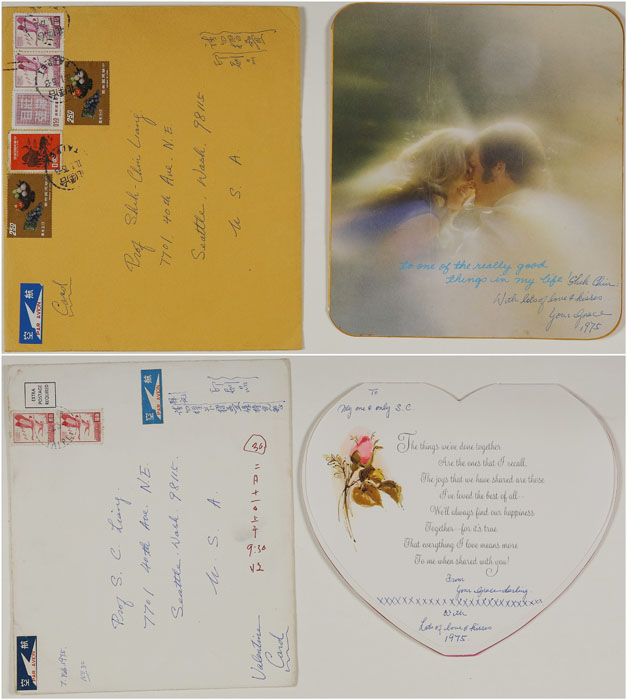 Prof Shih-Chiu Liang
7701, 40th Ave. N.E.
Seattle, Wash. 98115
U. S. A
Card
航空
PAR AVION
to one of the really good
things in my life
Shih Chiu
With lots of love & kisses
Your Grace
1975
EXTRA
POSTAGE
REQUIRED
航空
PAR AVION
Prof S. C. Liang
7701 40th Ave. NE
Seattle Wash 98115.
U. S. A.
9:30
Valentine
Card
航空
PAR AVION
7. Feb. 1975.
To
My one & only S.C.
The things we've done together
Are the ones that I recall.
The joys that we have shared are those
I've loved the best of all—
We'll always find our happiness
Together—for it's true
That everything I love means more
To me when shared with you!
From
Your Grace-darling
XXXXXXXXXXXXXXXXXXXXXXXXXX
With
Lots of love & kisses
1975.